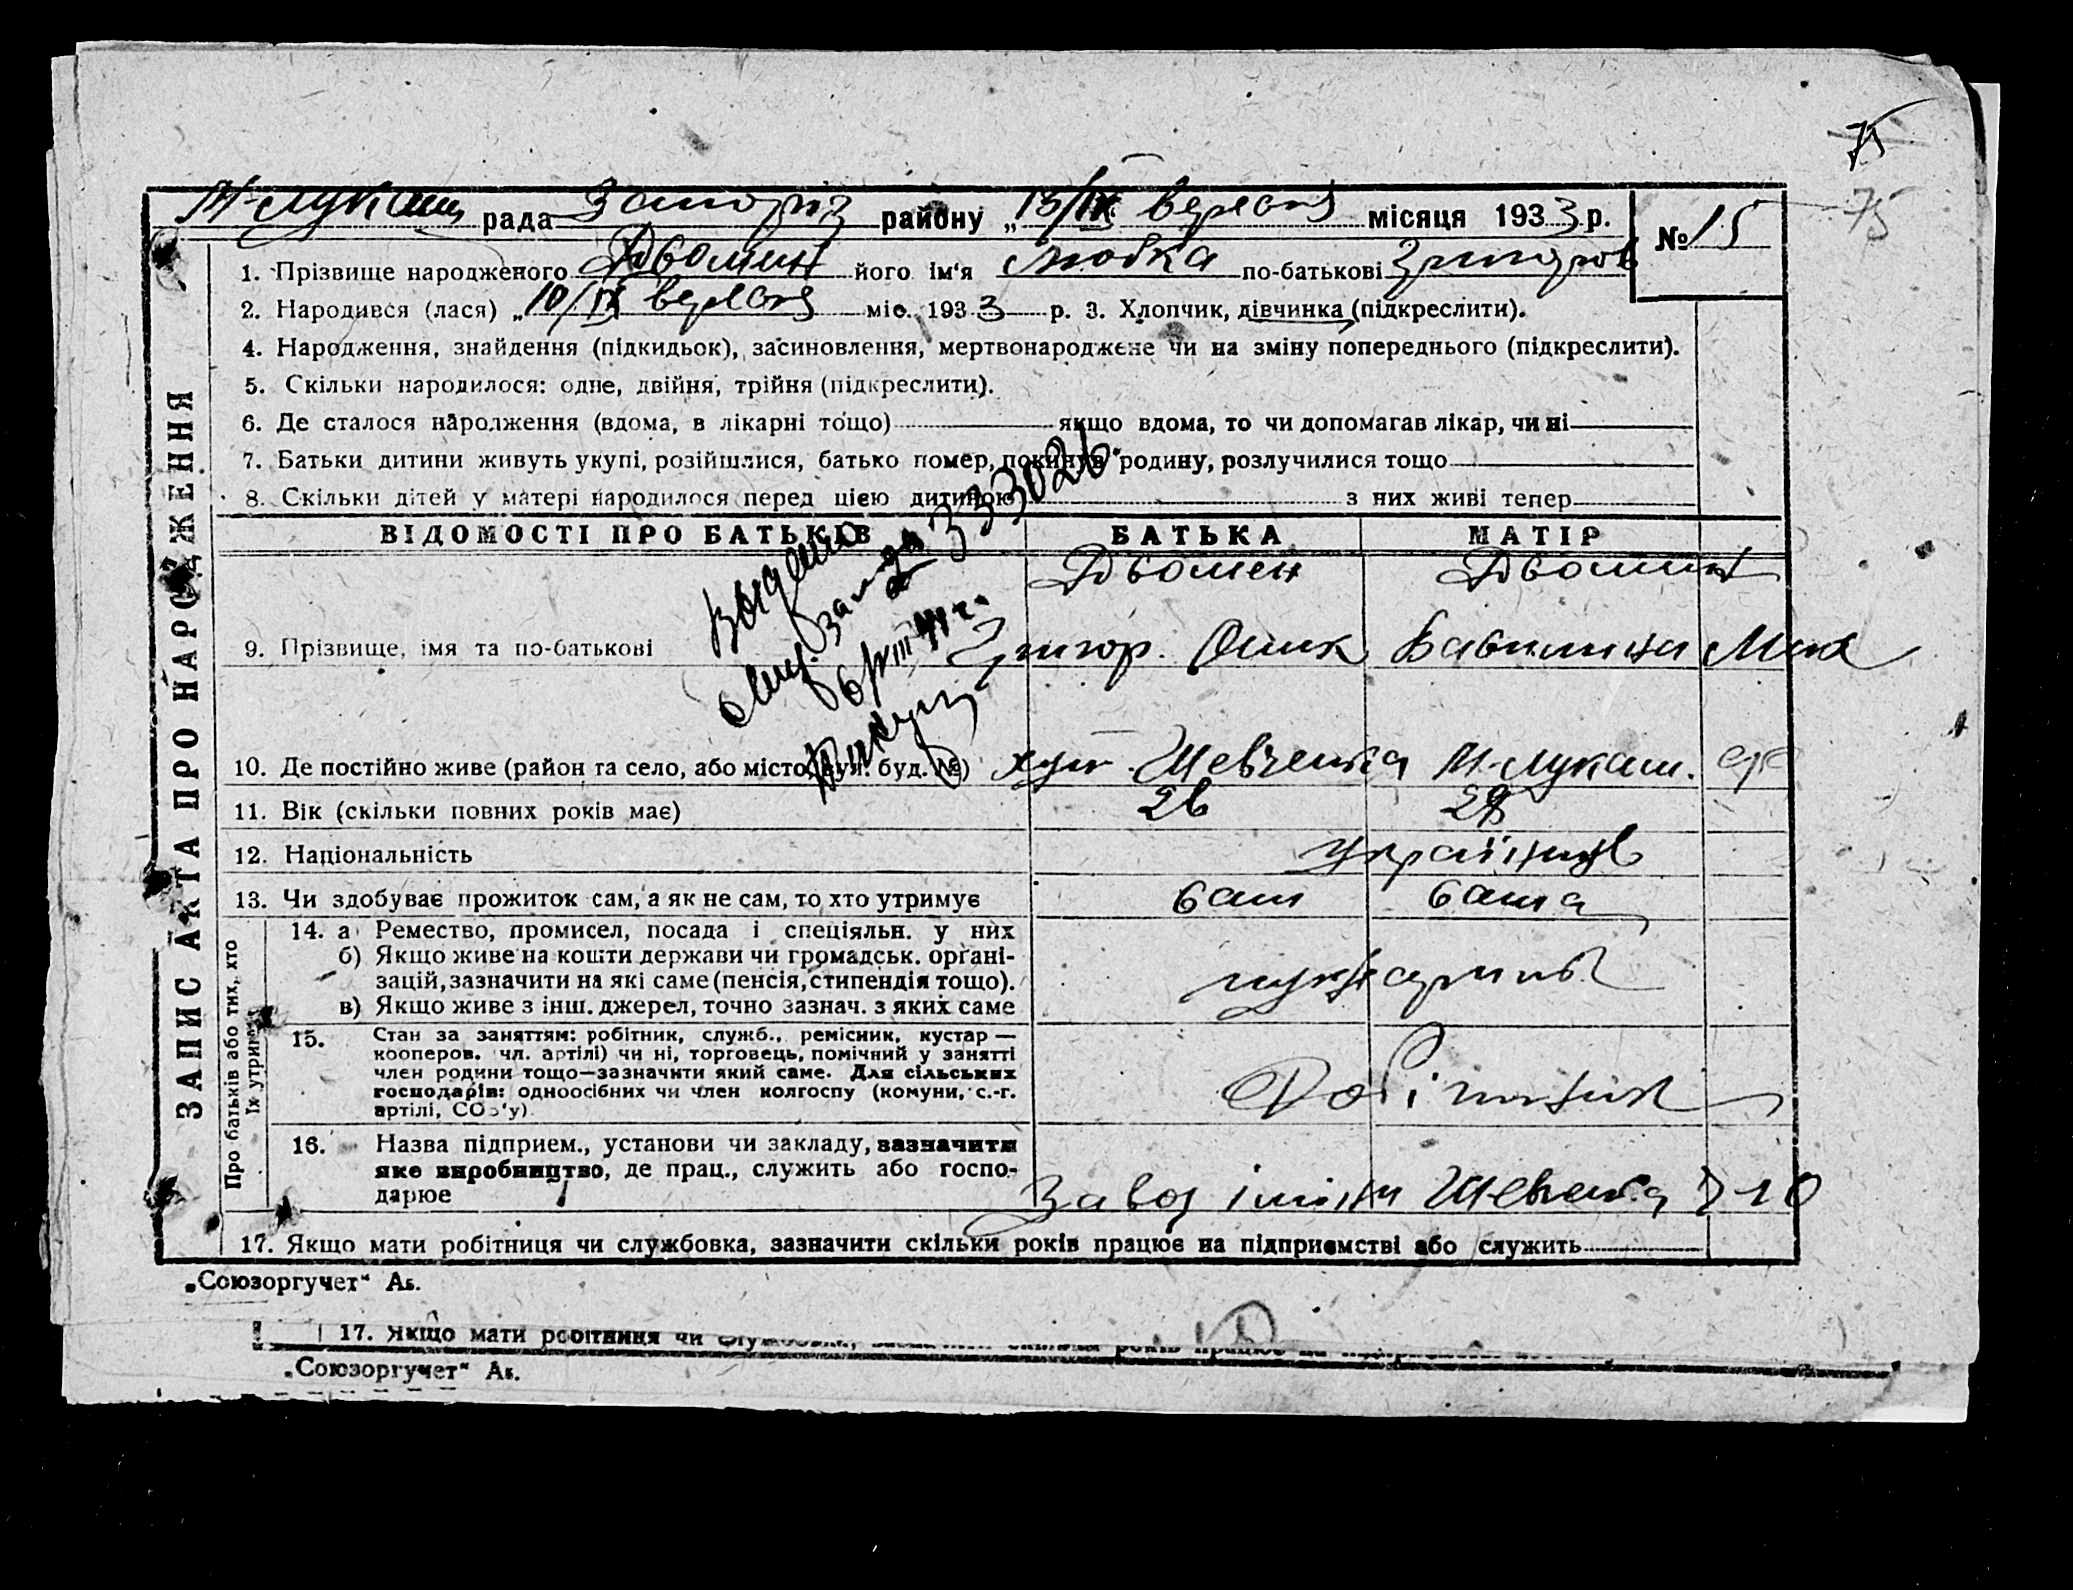 75
75
М-Лукаш рада Запоріз району „13/IX вересня місяця 1933 р.
№ 15
1. Прізвище народженого Двомин його ім'я Любка по-батькові Григоров
2. Народився (лася) „10/IX вересня міс. 1933 р. 3. Хлопчик, дівчинка (підкреслити).
4. Народження, знайдення (підкидьок), засиновлення, мертвонароджене чи на зміну попереднього (підкреслити).
5. Скільки народилося: одне, двійня, трійня (підкреслити).
6. Де сталося народження (вдома, в лікарні тощо) якщо вдома, то чи допомагав лікар, чи ні
7. Батьки дитини живуть укупі, розійшлися, батько помер, покинув родину, розлучилися тощо
8. Скільки дітей у матері народилося перед цією дитиною з них живі тепер
ЗАПИС АКТА ПРО НАРОДЖЕННЯ
ВІДОМОСТІ ПРО БАТЬКІВ БАТЬКА МАТІР
Двомен Двомин
9. Прізвище, імя та по-батькові Григор. Мих
333026
10. Де постійно живе (район та село, або місто, вул. буд. №) хут. Шевченка М-Лукаш.
11. Вік (скільки повних років має) 26
12. Національність українців
13. Чи здобуває прожиток сам, а як не сам, то хто утримує сам сама
Про батьків або тих, хто їх утримує
14. а Ремество, промисел, посада і спеціяльн. у них
б) Якщо живе на кошти держави чи громадськ. органі-
зацій, зазначити на які саме (пенсія, стипендія тощо).
в) Якщо живе з інш. джерел, точно зазнач. з яких саме
15. Стан за заняттям: робітник, служб., ремісник, кустар —
кооперов. чл. артілі) чи ні, торговець, помічний у занятті
член родини тощо—зазначити який саме. Для сільських
господарів: одноосібних чи член колгоспу (комуни, с.-г.
артілі, СОЗ'у)
Робітник
16. Назва підприєм., установи чи закладу, зазначити
яке виробництво, де прац., служить або госпо-
дарює
Завод імени Шевченка
17. Якщо мати робітниця чи службовка, зазначити скільки років працює на підприємстві або служить
„Союзоргучет“ Ав.
17. Якщо мати робітниця чи
„Союзоргучет“ Ав.